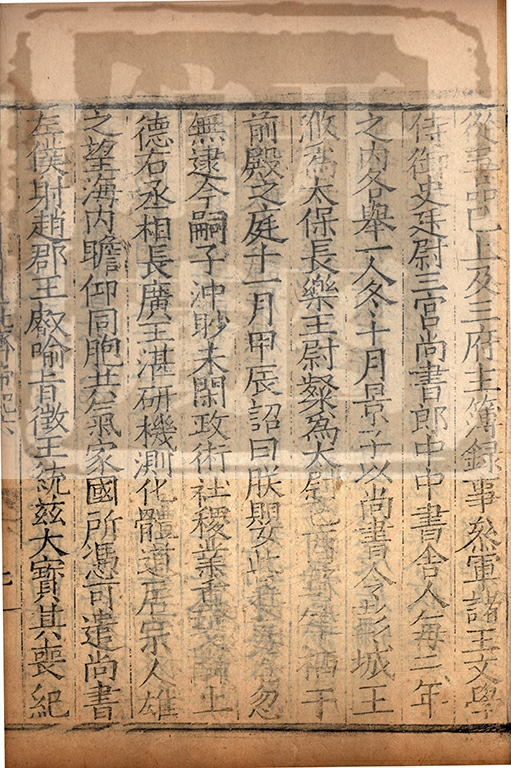 從事品已上及三府主簿錄事叅軍諸王文學
侍御史廷尉三官尚書郎中中書舍人每二年
之內各舉一人冬十月景子以尚書令彭城王
浟為太保長樂王尉粲為太尉己酉野雉栖于
前殿之庭十一月甲辰詔曰朕嬰此忽
無逮今嗣子沖眇未閑政術社稷業重上
德右丞相長廣王湛研機測化體道居宗人雄
之望海內瞻仰同胞共氣家國所憑可遣尚書
左僕射趙郡王叡喻旨徵王統茲大寶其喪紀